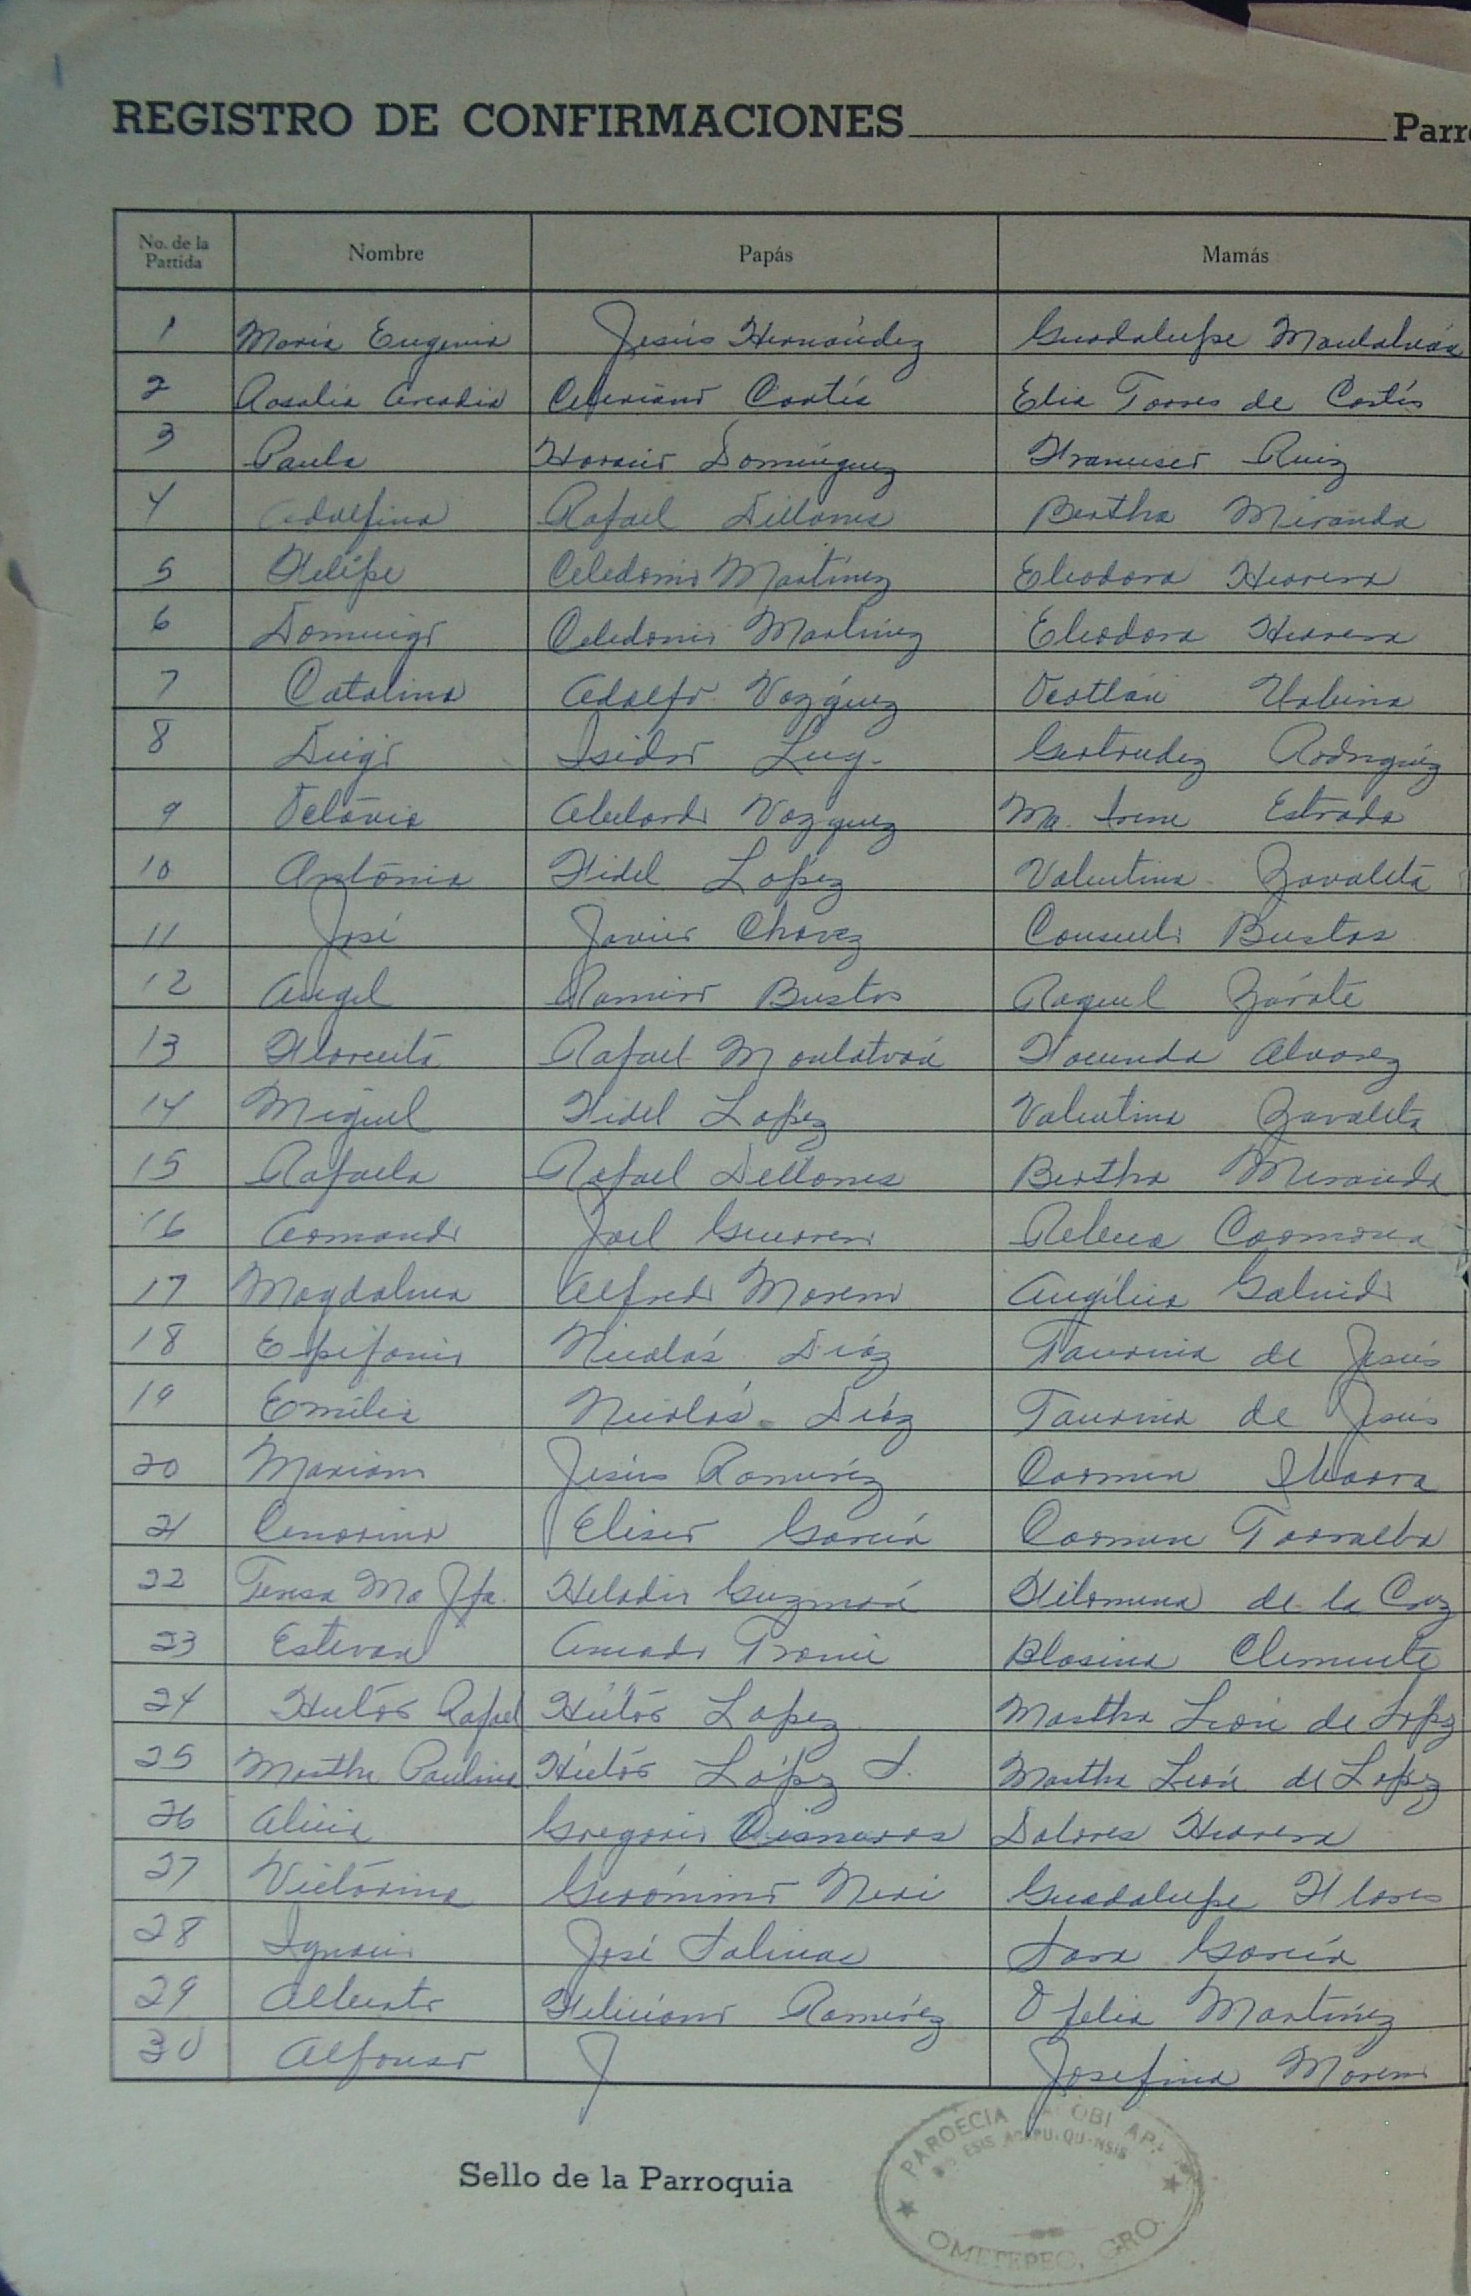 REGISTRO DE CONFIRMACIONES Parr
No. de la Partida Nombre Papás Mamás
1 María Eugenia Jesús Hernández Guadalupe Montalván
2 Rosalia Arcadia Ceferiano Cortés Elia Torres de Cortés
3 Paula Horacio Domínguez Francisco Ruiz
4 Adolfina Rafael Dillanes Bertha Miranda
5 Felipe Celedonio Martínez Eleodora Herrera
6 Domingo Celedonio Martínez Eleodora Herrera
7 Catalina Adolfo Vázquez Ocotlán Urbina
8 Diego Isidor Lug. Gertrudez Rodríguez
9 Octavia Abelardo Vazquez Ma. Irene Estrada
10 Antonia Fidel López Valentina Zavaleta
11 José Javier Chávez Consuelo Bustos
12 Angel Ramiro Bustos Raquel Zárate
13 Florentá Rafael Montalván Facunda Alvarez
14 Miguel Fidel López Valentina Zavaleta
15 Rafaela Rafael Dellanes Bertha Miranda
16 Armando Joel Guerrero Rebeca Carmona
17 Magdalena Alfredo Moreno Angélica Galindo
18 Epifanio Nicolás Díaz Taurina de Jesús
19 Emilia Nicolás Díaz Taurina de Jesús
20 Mariano Jesús Ramírez Carmen Ibarra
21 Cenorina Eliser García Carmen Torralba
22 Teresa Ma Jfa. Heladio Guzmán Filomena de la Cruz
23 Estevan Amado Blasina Clemente
24 Héctor Rafael Héctor López Martha León de López
25 Martha Paulina Héctor López S. Martha León de López
26 Alicia Gregorio Cisneros Dolores Herrera
27 Victorina Gerónimo Neri Guadalupe Flores
28 Ignacio José Salinas Sara García
29 Alberto Feliciano Ramírez Ofelia Martínez
30 Alfonso J Josefina Moreno
Sello de la Parroquia
PAROECIA OBI AP
ESIS ACAPULQUENSIS
OMETEPEC, GRO.